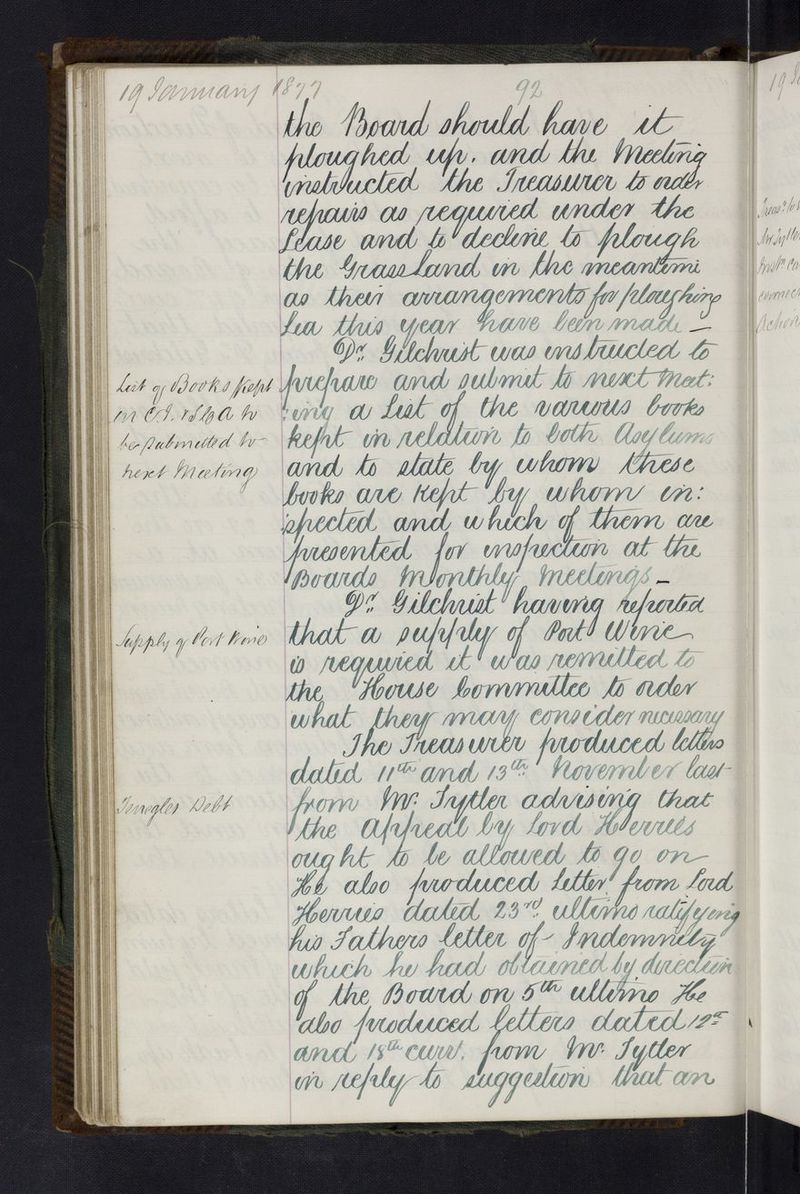 19 January 1877
92
the Board should have it
ploughed up. and the Meeting
instructed the Treasurer to order
repairs as required under the
Lease and to decline to plough
the Grass Land in the meantime
as their arrangements for ploughing
Lea this year have been made —
Dr. Gilchrist was instructed to
List of Books kept
in C.R.I. & S.C.A to
be submitted to
next Meeting
prepare and submit to next Meet:
:ing a List of the various books
kept in relation to both Asylums
and to state by whom these
books are kept by whom in:
:spected and which of them are
presented for inspection at the
Boards Monthly Meetings —
Dr. Gilchrist having reported
Supply of Port Wine
that a supply of Port Wine
is required it was remitted to
the House Committee to order
what they may consider necessary
The Treasurer produced letters
dated 11th and 13th November last
Terregles Debt
from Mr. Tytler advising that
the Appeal by Lord Herries
ought to be allowed to go on
He also produced Letter from Lord
Herries dated 23rd ultimo ratifying
his Fathers letter of Indemnity
which he had obtained by direction
of the Board on 5th ultimo He
also produced letters dated 12th
and 18th curr. from Mr. Tytler
in reply to suggestion that an
19